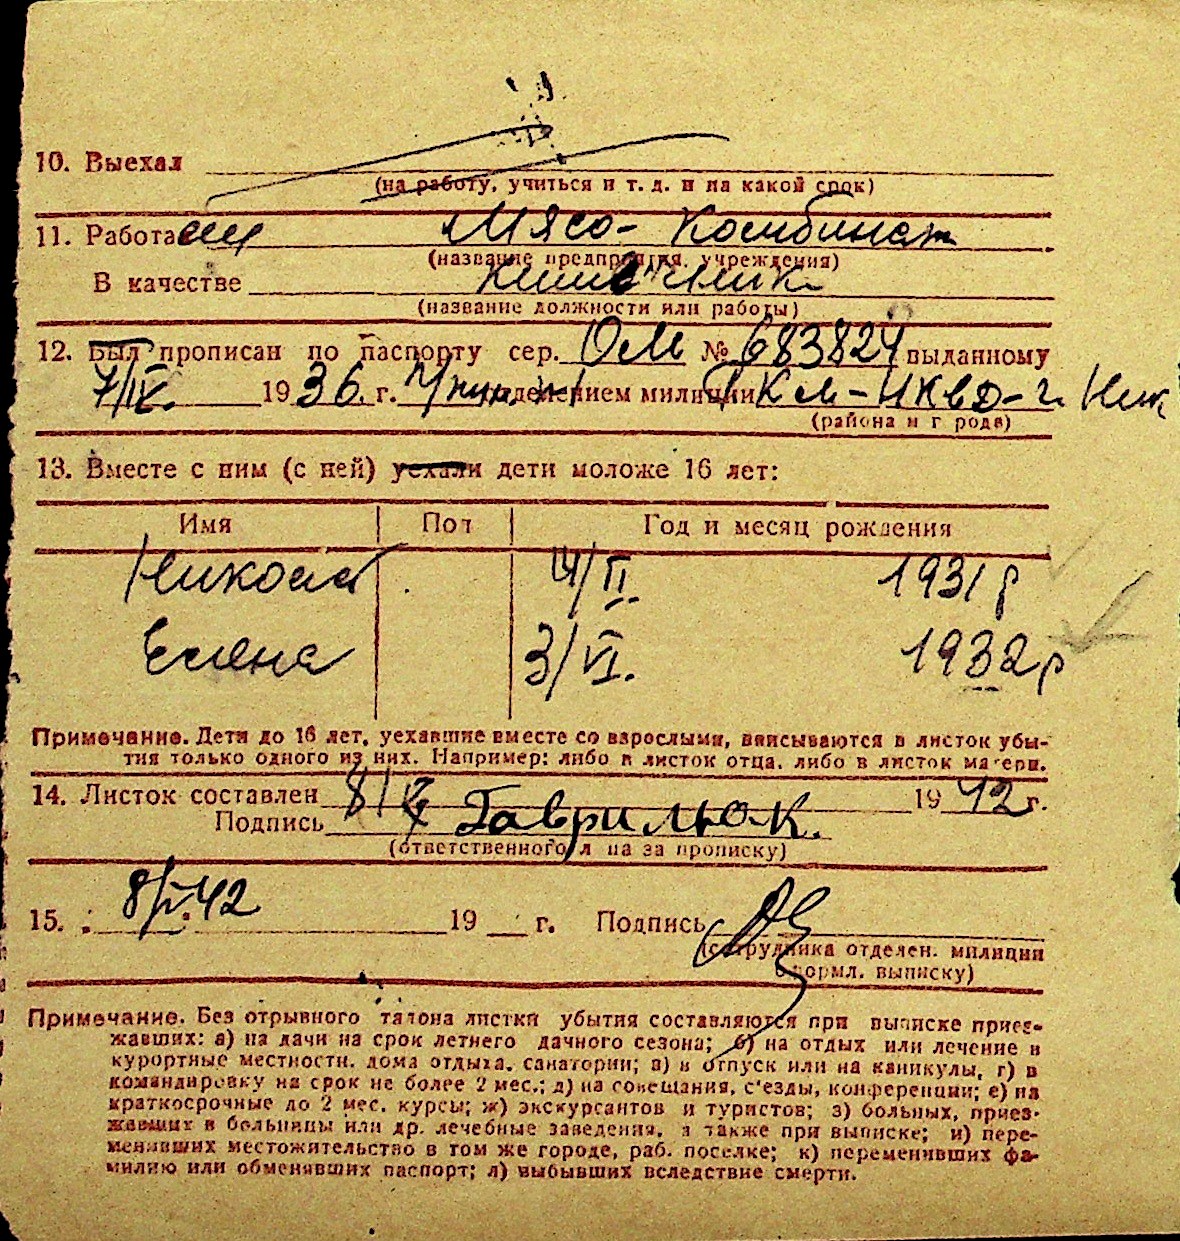 10. Выехал
(на работу, учиться и т. д. и на какой срок)
11. Работает Мясо-Комбинат
(название предприятия, учреждения)
В качестве кишечник
(название должности или работы)
12. Был прописан по паспорту сер. ОМ № 683824 выданному
7/IV. 1936 г. делением милиции РКМ-НКВД-г. Ник
(района и г рода)
13. Вместе с ним (с ней) уехали дети моложе 16 лет:
Имя Пол Год и месяц рождения
Николай 14/II 1931 г
Елена 3/VI. 1932 г
Примечание. Дети до 16 лет, уехавшие вместе со взрослыми, вписываются в листок убы-
тия только одного из них. Например: либо в листок отца, либо в листок матери.
14. Листок составлен 8/ 1942 г.
Подпись Гаврилюк.
(ответственного л ца за прописку)
15. 8/ 42 19 г. Подпись
(сотрудника отделен. милиции
оформл. выписку)
Примечание. Без отрывного талона листки убытия составляются при выписке приез-
жавших: а) на дачи на срок летнего дачного сезона; б) на отдых или лечение в
курортные местности, дома отдыха, санатории; в) в отпуск или на каникулы, г) в
командировку на срок не более 2 мес.; д) на совещания, с'езды, конференции; е) на
краткосрочные до 2 мес. курсы; ж) экскурсантов и туристов; з) больных, приез-
жавших в больницы или др. лечебные заведения, а также при выписке; и) пере-
менивших местожительство в том же городе, раб. поселке; к) переменивших фа-
милию или обменявших паспорт; л) выбывших вследствие смерти.